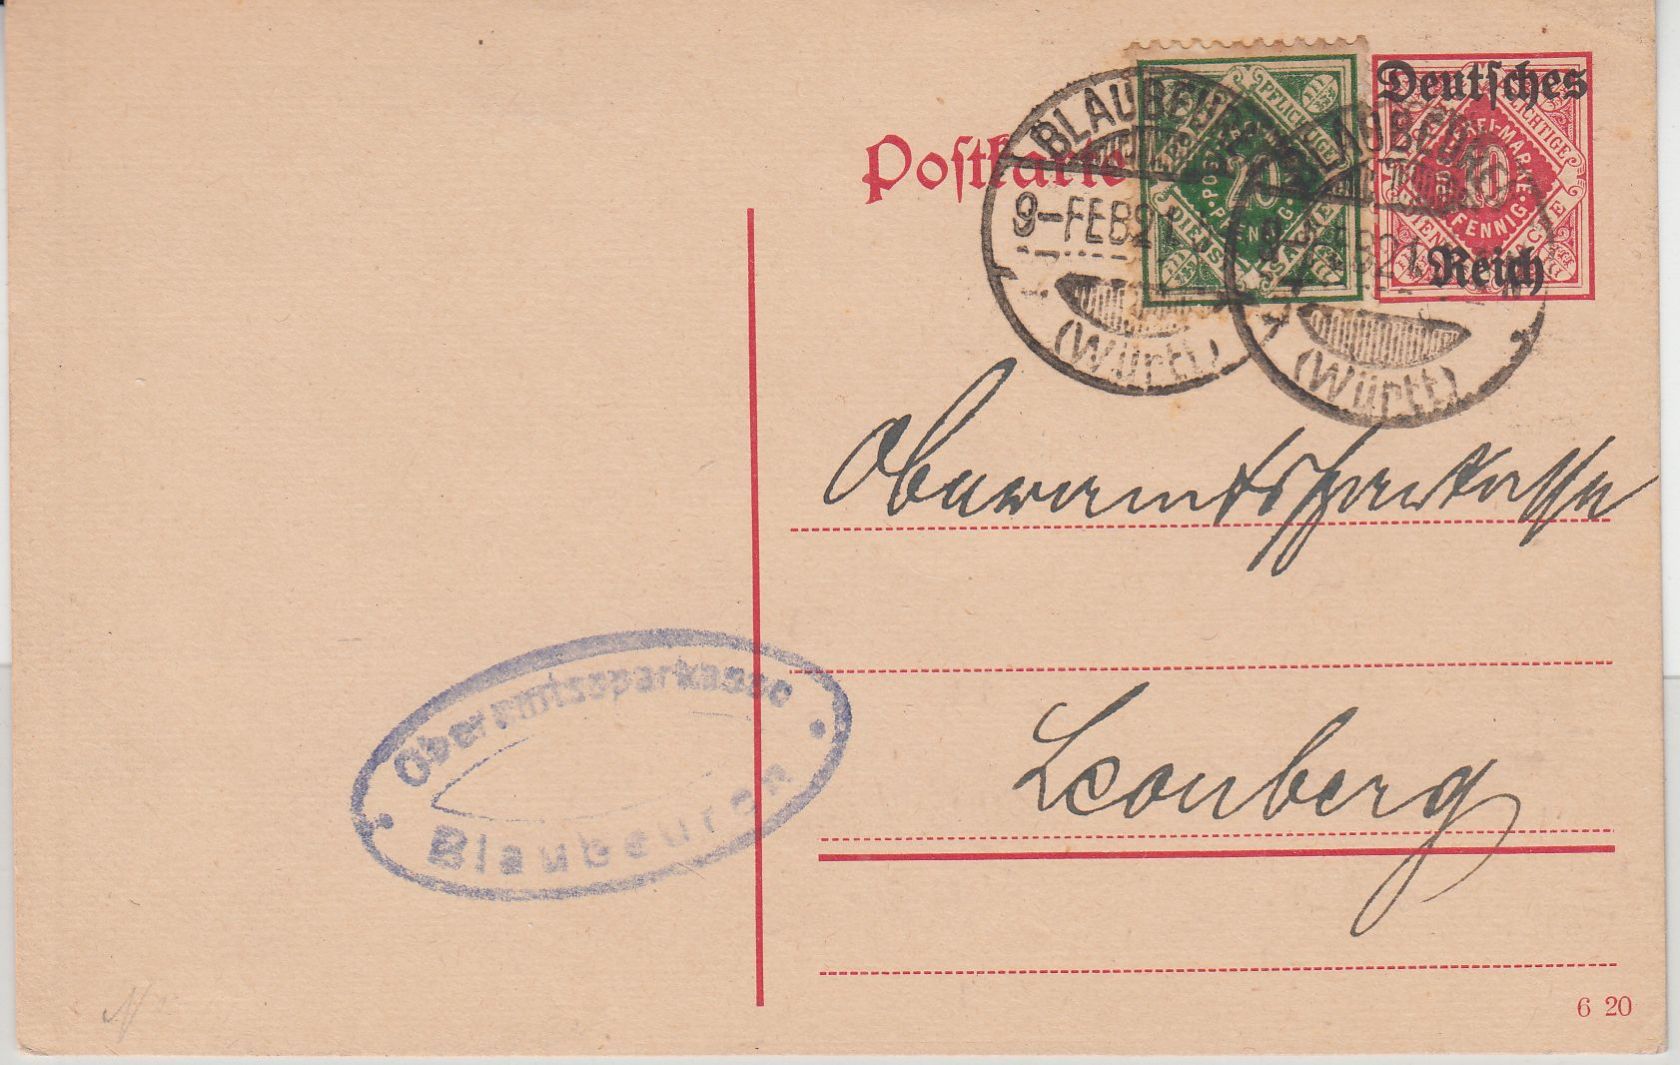 Postkarte
Deutsches
Reich
10
PFENNIG
BLAUBEUR
9-FEB21
(Württ)
AUBEUR
FEB21
(Württ)
Oberamtssparkasse
Leonberg
Oberamtssparkasse
Blaubeuren
6 20